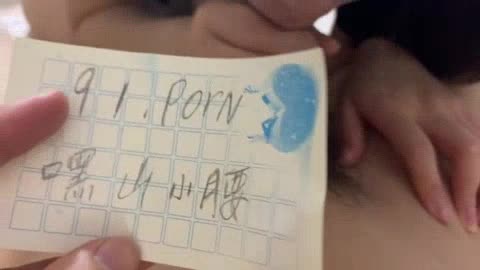 91.PORN
嘿山小腰